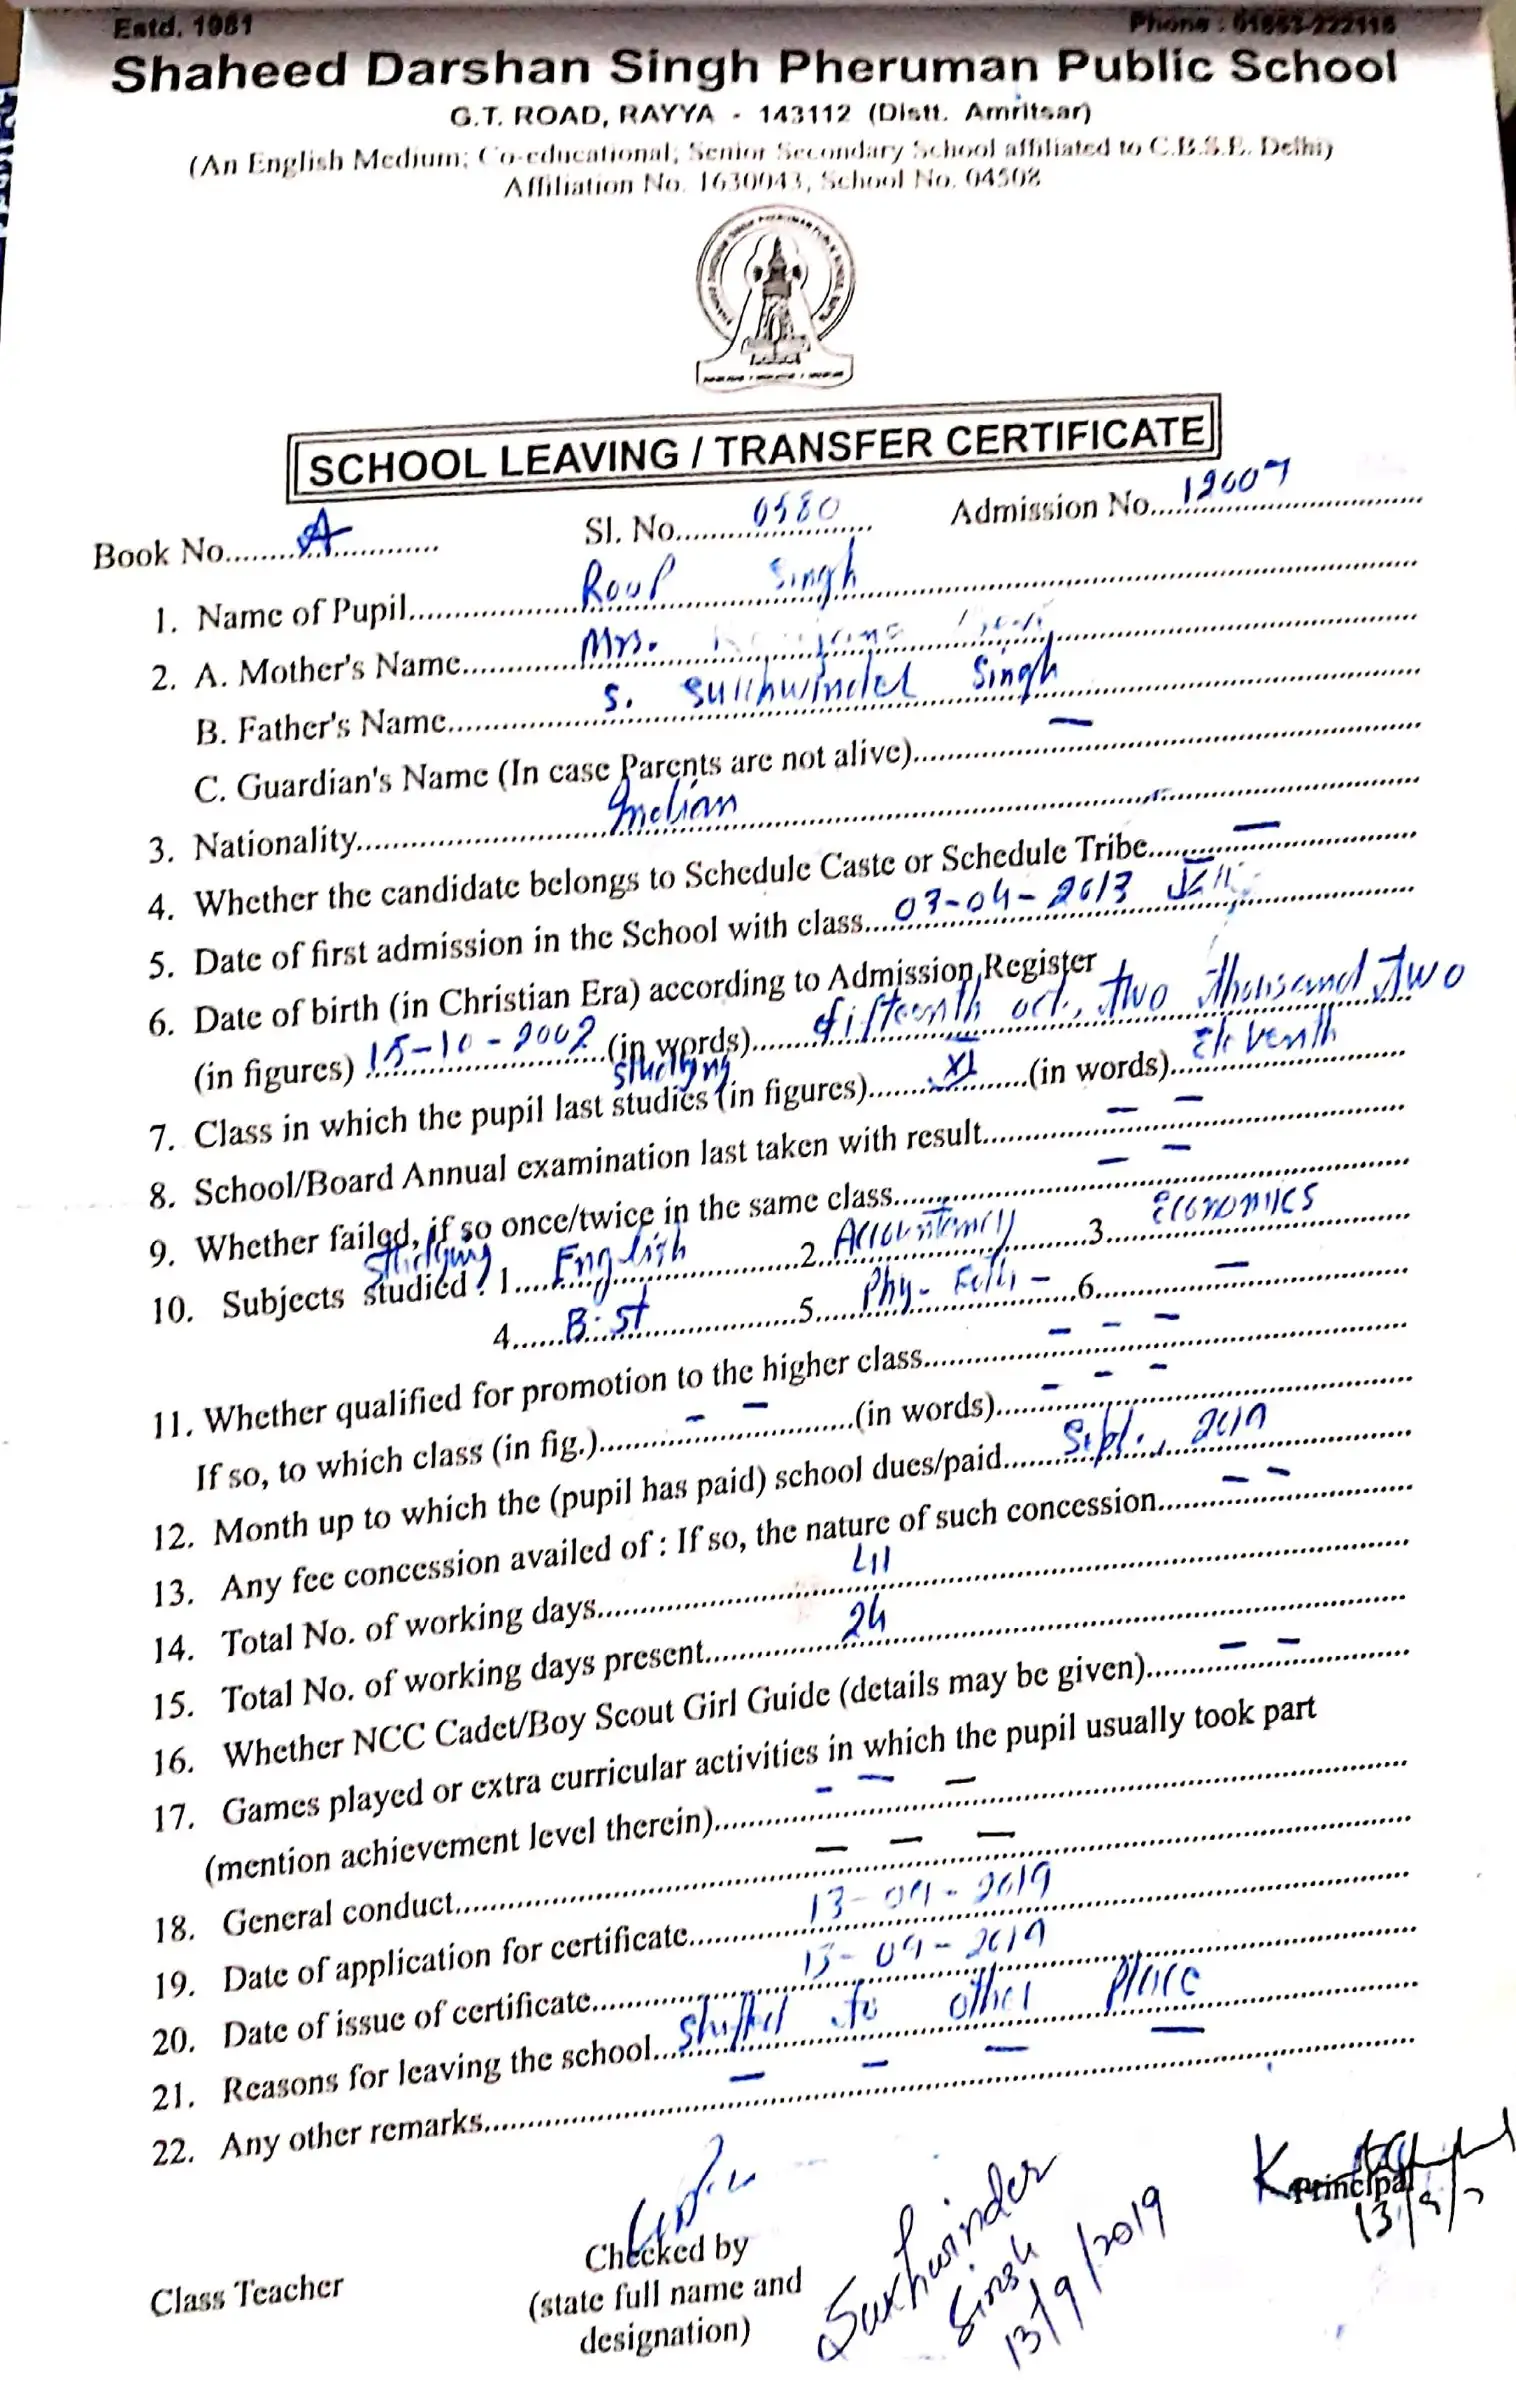 Estd. 1981 Phone : 01853-222115
Shaheed Darshan Singh Pheruman Public School
G.T. ROAD, RAYYA - 143112 (Distt. Amritsar)
(An English Medium; Co-educational; Senior Secondary School affiliated to C.B.S.E. Delhi)
Affiliation No. 1630043, School No. 04508
SCHOOL LEAVING / TRANSFER CERTIFICATE
Book No. A Sl. No. 0580 Admission No. 12007
1. Name of Pupil Roop Singh
2. A. Mother's Name Mrs.
B. Father's Name S. Sukhwinder Singh
C. Guardian's Name (In case Parents are not alive) —
3. Nationality Indian
4. Whether the candidate belongs to Schedule Caste or Schedule Tribe —
5. Date of first admission in the School with class 03-04-2013
6. Date of birth (in Christian Era) according to Admission Register
(in figures) 15-10-2002 (in words) fifteenth oct, two thousand two
studying
7. Class in which the pupil last studies (in figures) XI (in words) Eleventh
8. School/Board Annual examination last taken with result — —
9. Whether failed, if so once/twice in the same class — —
studying
10. Subjects studied : 1. English 2. Accountancy 3. Economics
4. B. St 5. Phy- Edu - 6. —
11. Whether qualified for promotion to the higher class — — —
If so, to which class (in fig.) — — (in words) — — —
12. Month up to which the (pupil has paid) school dues/paid Sept., 2019
13. Any fee concession availed of : If so, the nature of such concession — —
14. Total No. of working days 411
15. Total No. of working days present 24
16. Whether NCC Cadet/Boy Scout Girl Guide (details may be given) — —
17. Games played or extra curricular activities in which the pupil usually took part
(mention achievement level therein) — — —
18. General conduct — — —
19. Date of application for certificate 13-09-2019
20. Date of issue of certificate 13-09-2019
21. Reasons for leaving the school Shifted to other Place
22. Any other remarks — — — —
Principal
13/9/
Class Teacher
Checked by
(state full name and
designation)
Sukhwinder
Singh
13/9/2019